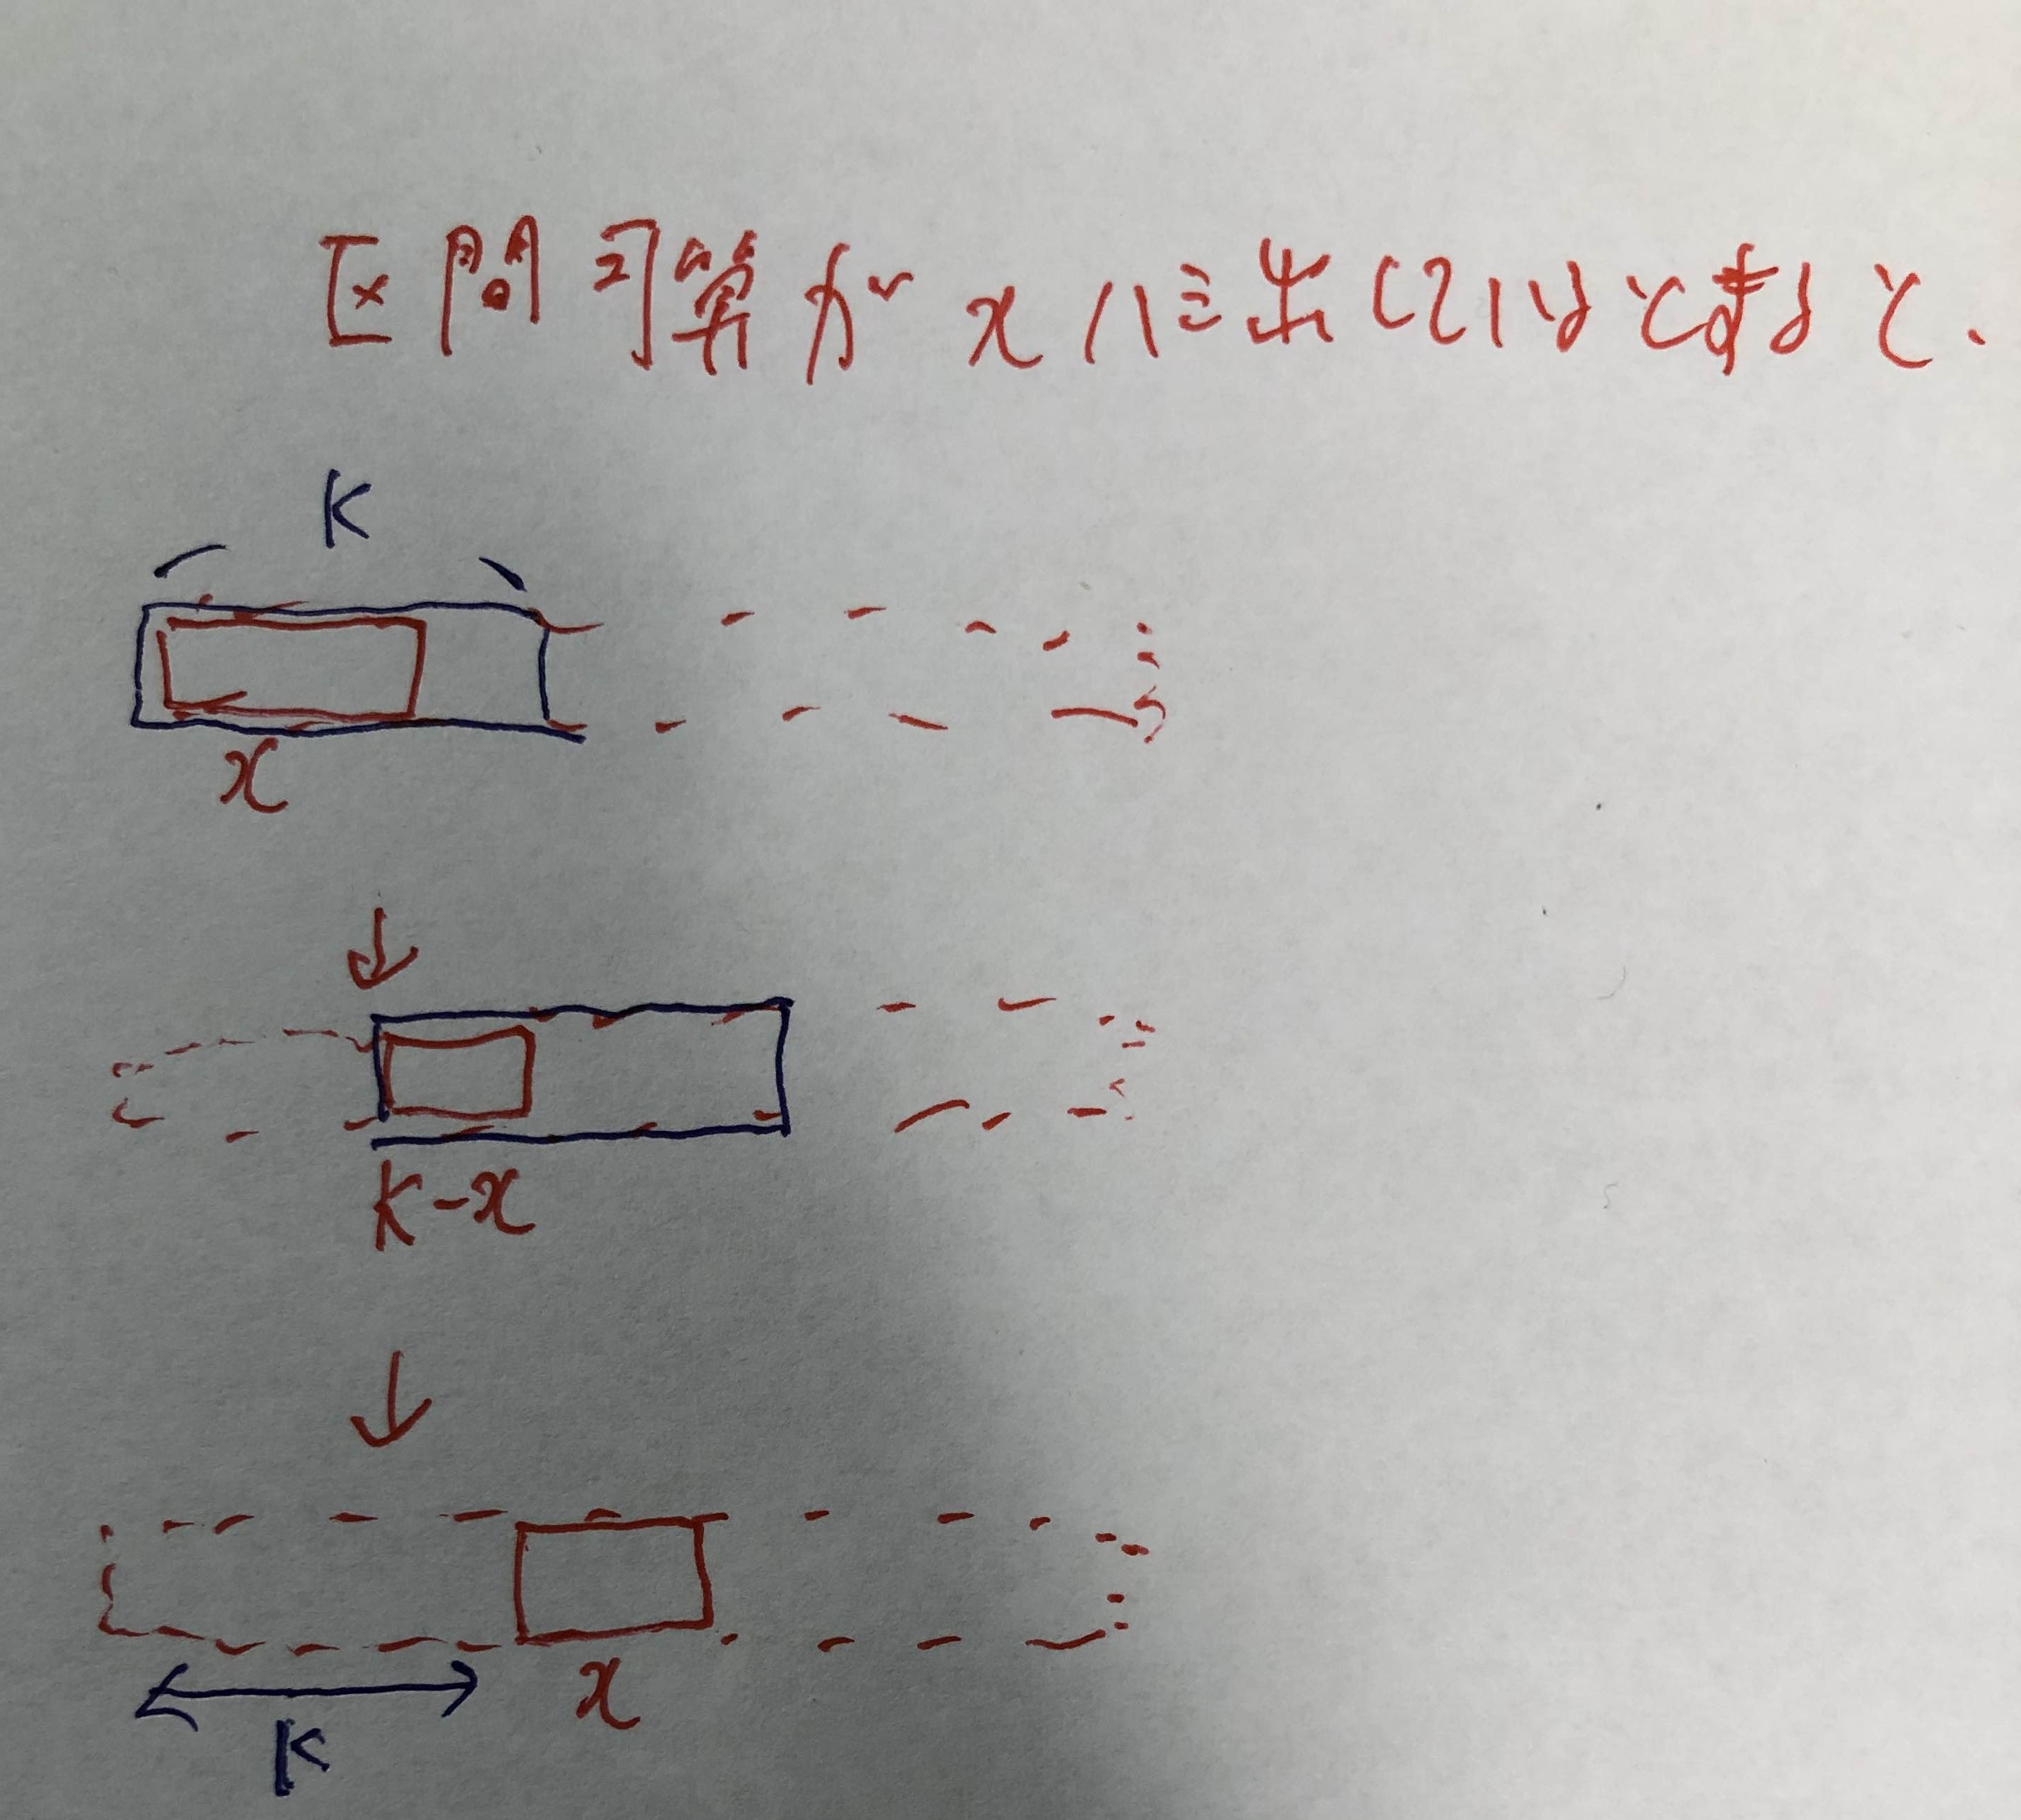 区間 算が x ハミ出しているとすると、
K
x
↓
K-x
↓
x
K